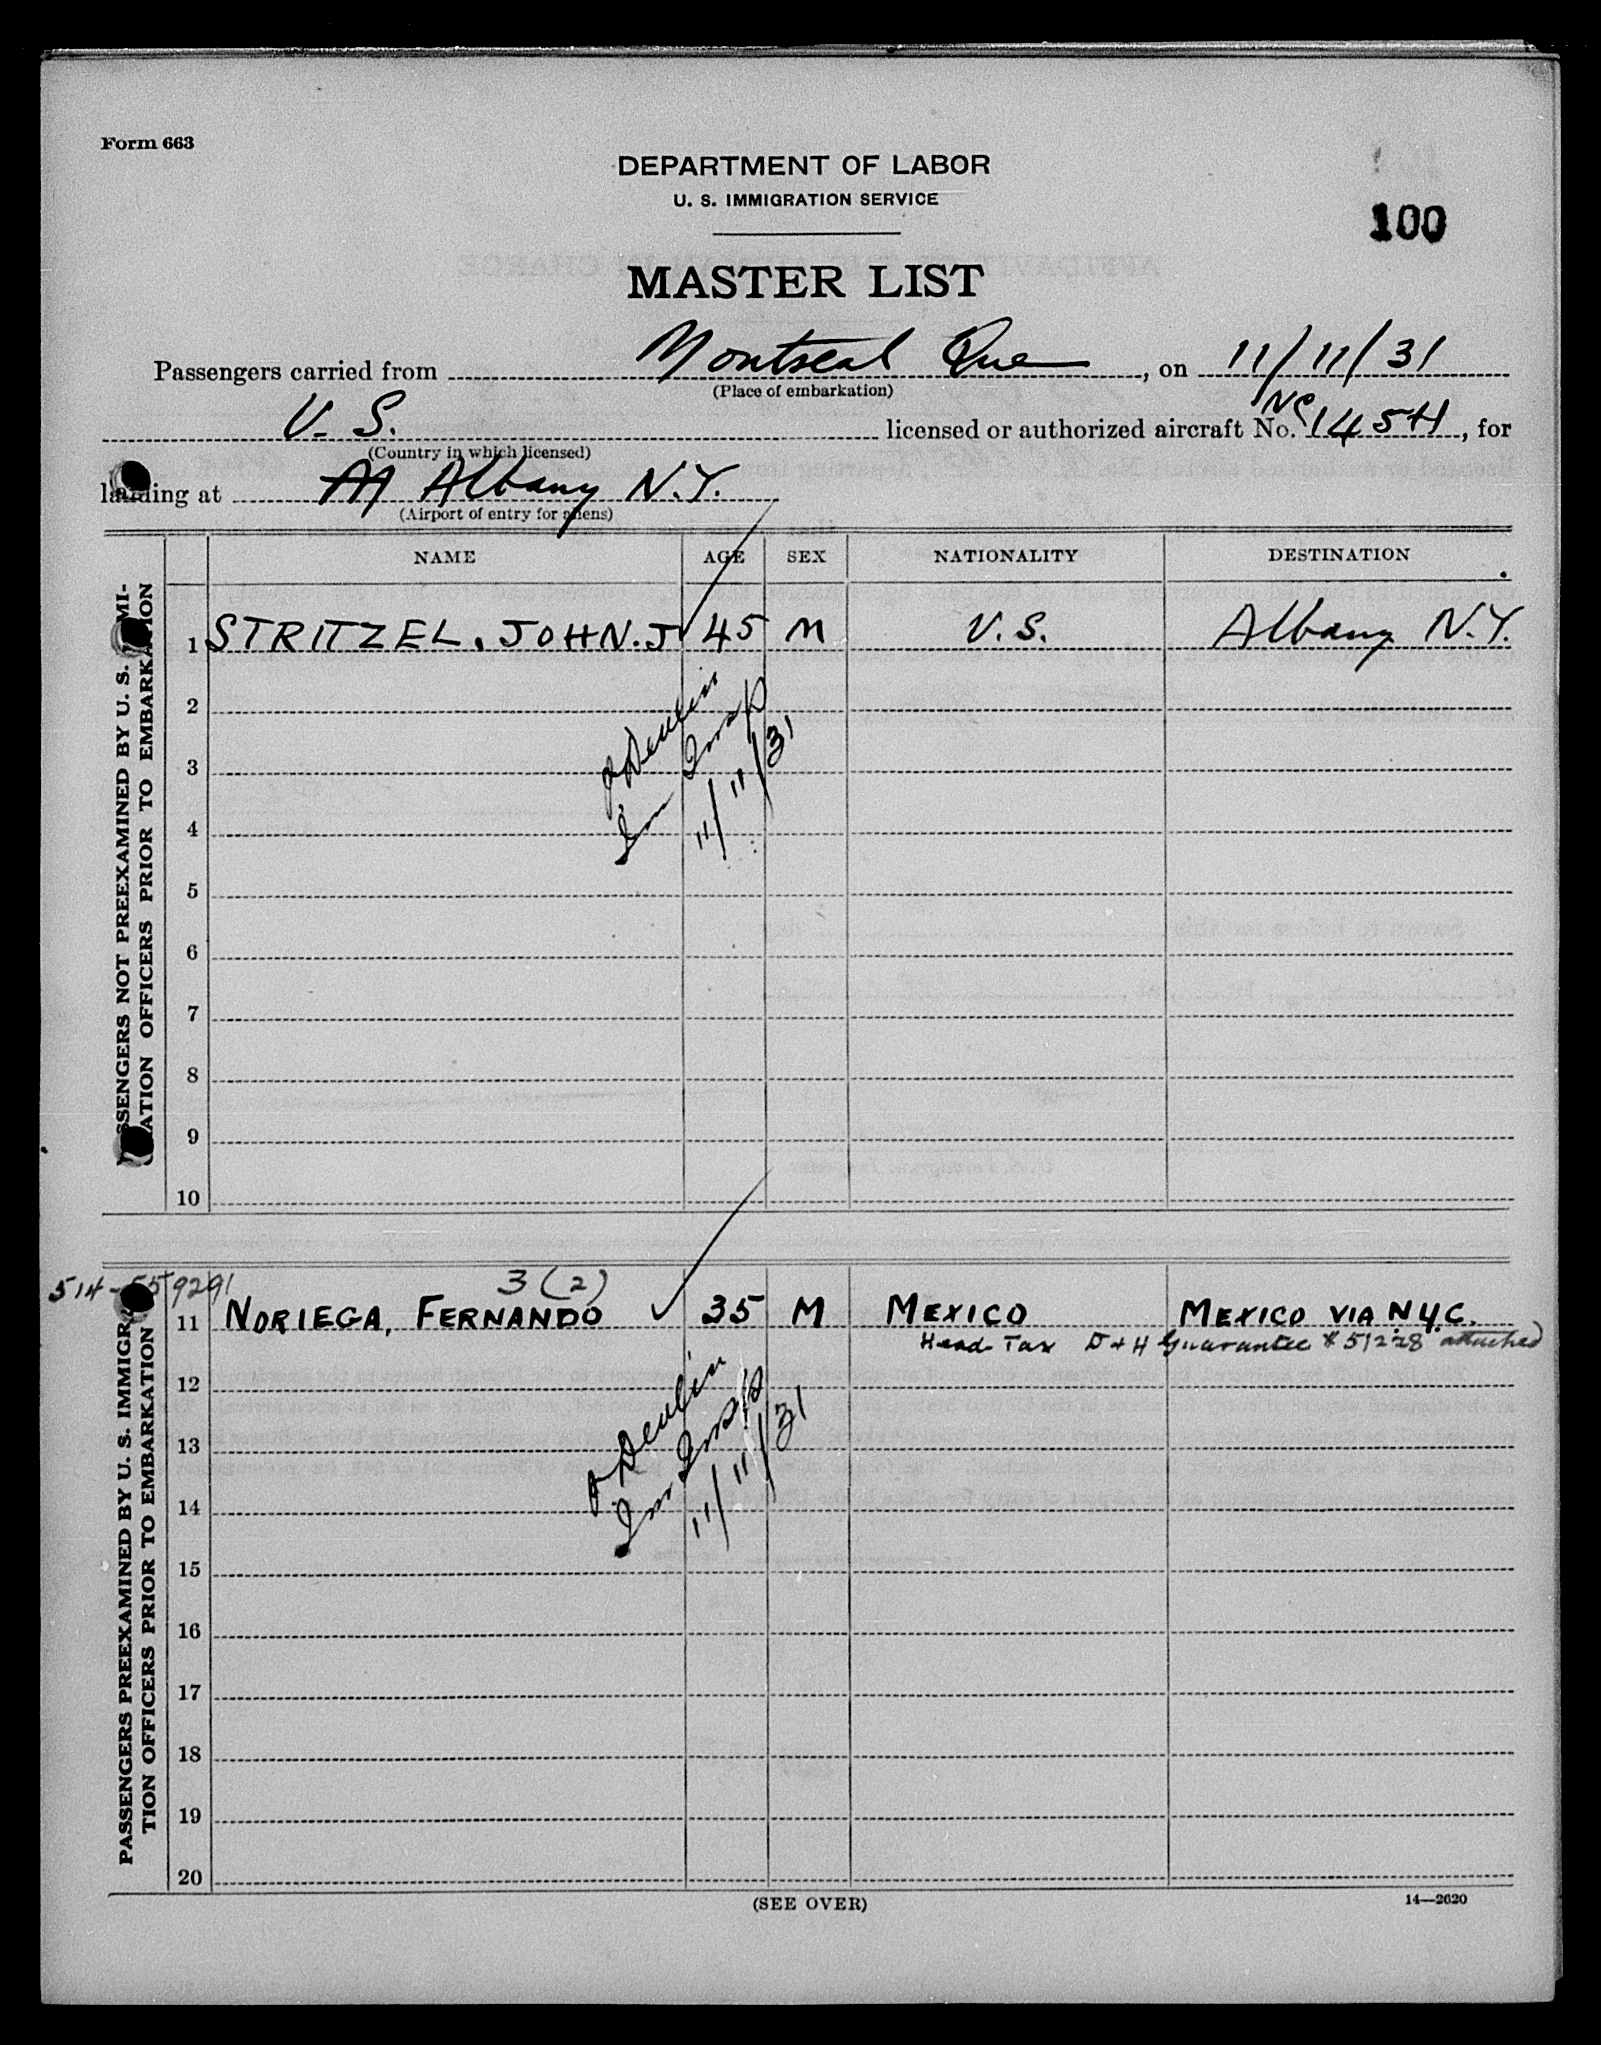 Form 663
DEPARTMENT OF LABOR
U. S. IMMIGRATION SERVICE
100
MASTER LIST
Passengers carried from Montreal Que, on 11/11/31
(Place of embarkation)
U. S. licensed or authorized aircraft No. NC 145H, for
(Country in which licensed)
landing at Albany N.Y.
(Airport of entry for aliens)
NAME AGE SEX NATIONALITY DESTINATION
PASSENGERS NOT PREEXAMINED BY U. S. IMMI-
GRATION OFFICERS PRIOR TO EMBARKATION
1 STRITZEL, JOHN. J 45 M U.S. Albany N.Y.
2
3
4
5
6
7
8
9
10
Devlin
Im Insp
11/11/31
PASSENGERS PREEXAMINED BY U. S. IMMIGRA-
TION OFFICERS PRIOR TO EMBARKATION
3(2)
11 NORIEGA, FERNANDO 35 M MEXICO MEXICO VIA N.Y.C.
Head Tax D + H Guarantee # 51228 attached
12
13
14
15
16
17
18
19
20
Devlin
Im Insp
11/11/31
(SEE OVER)
14—2620